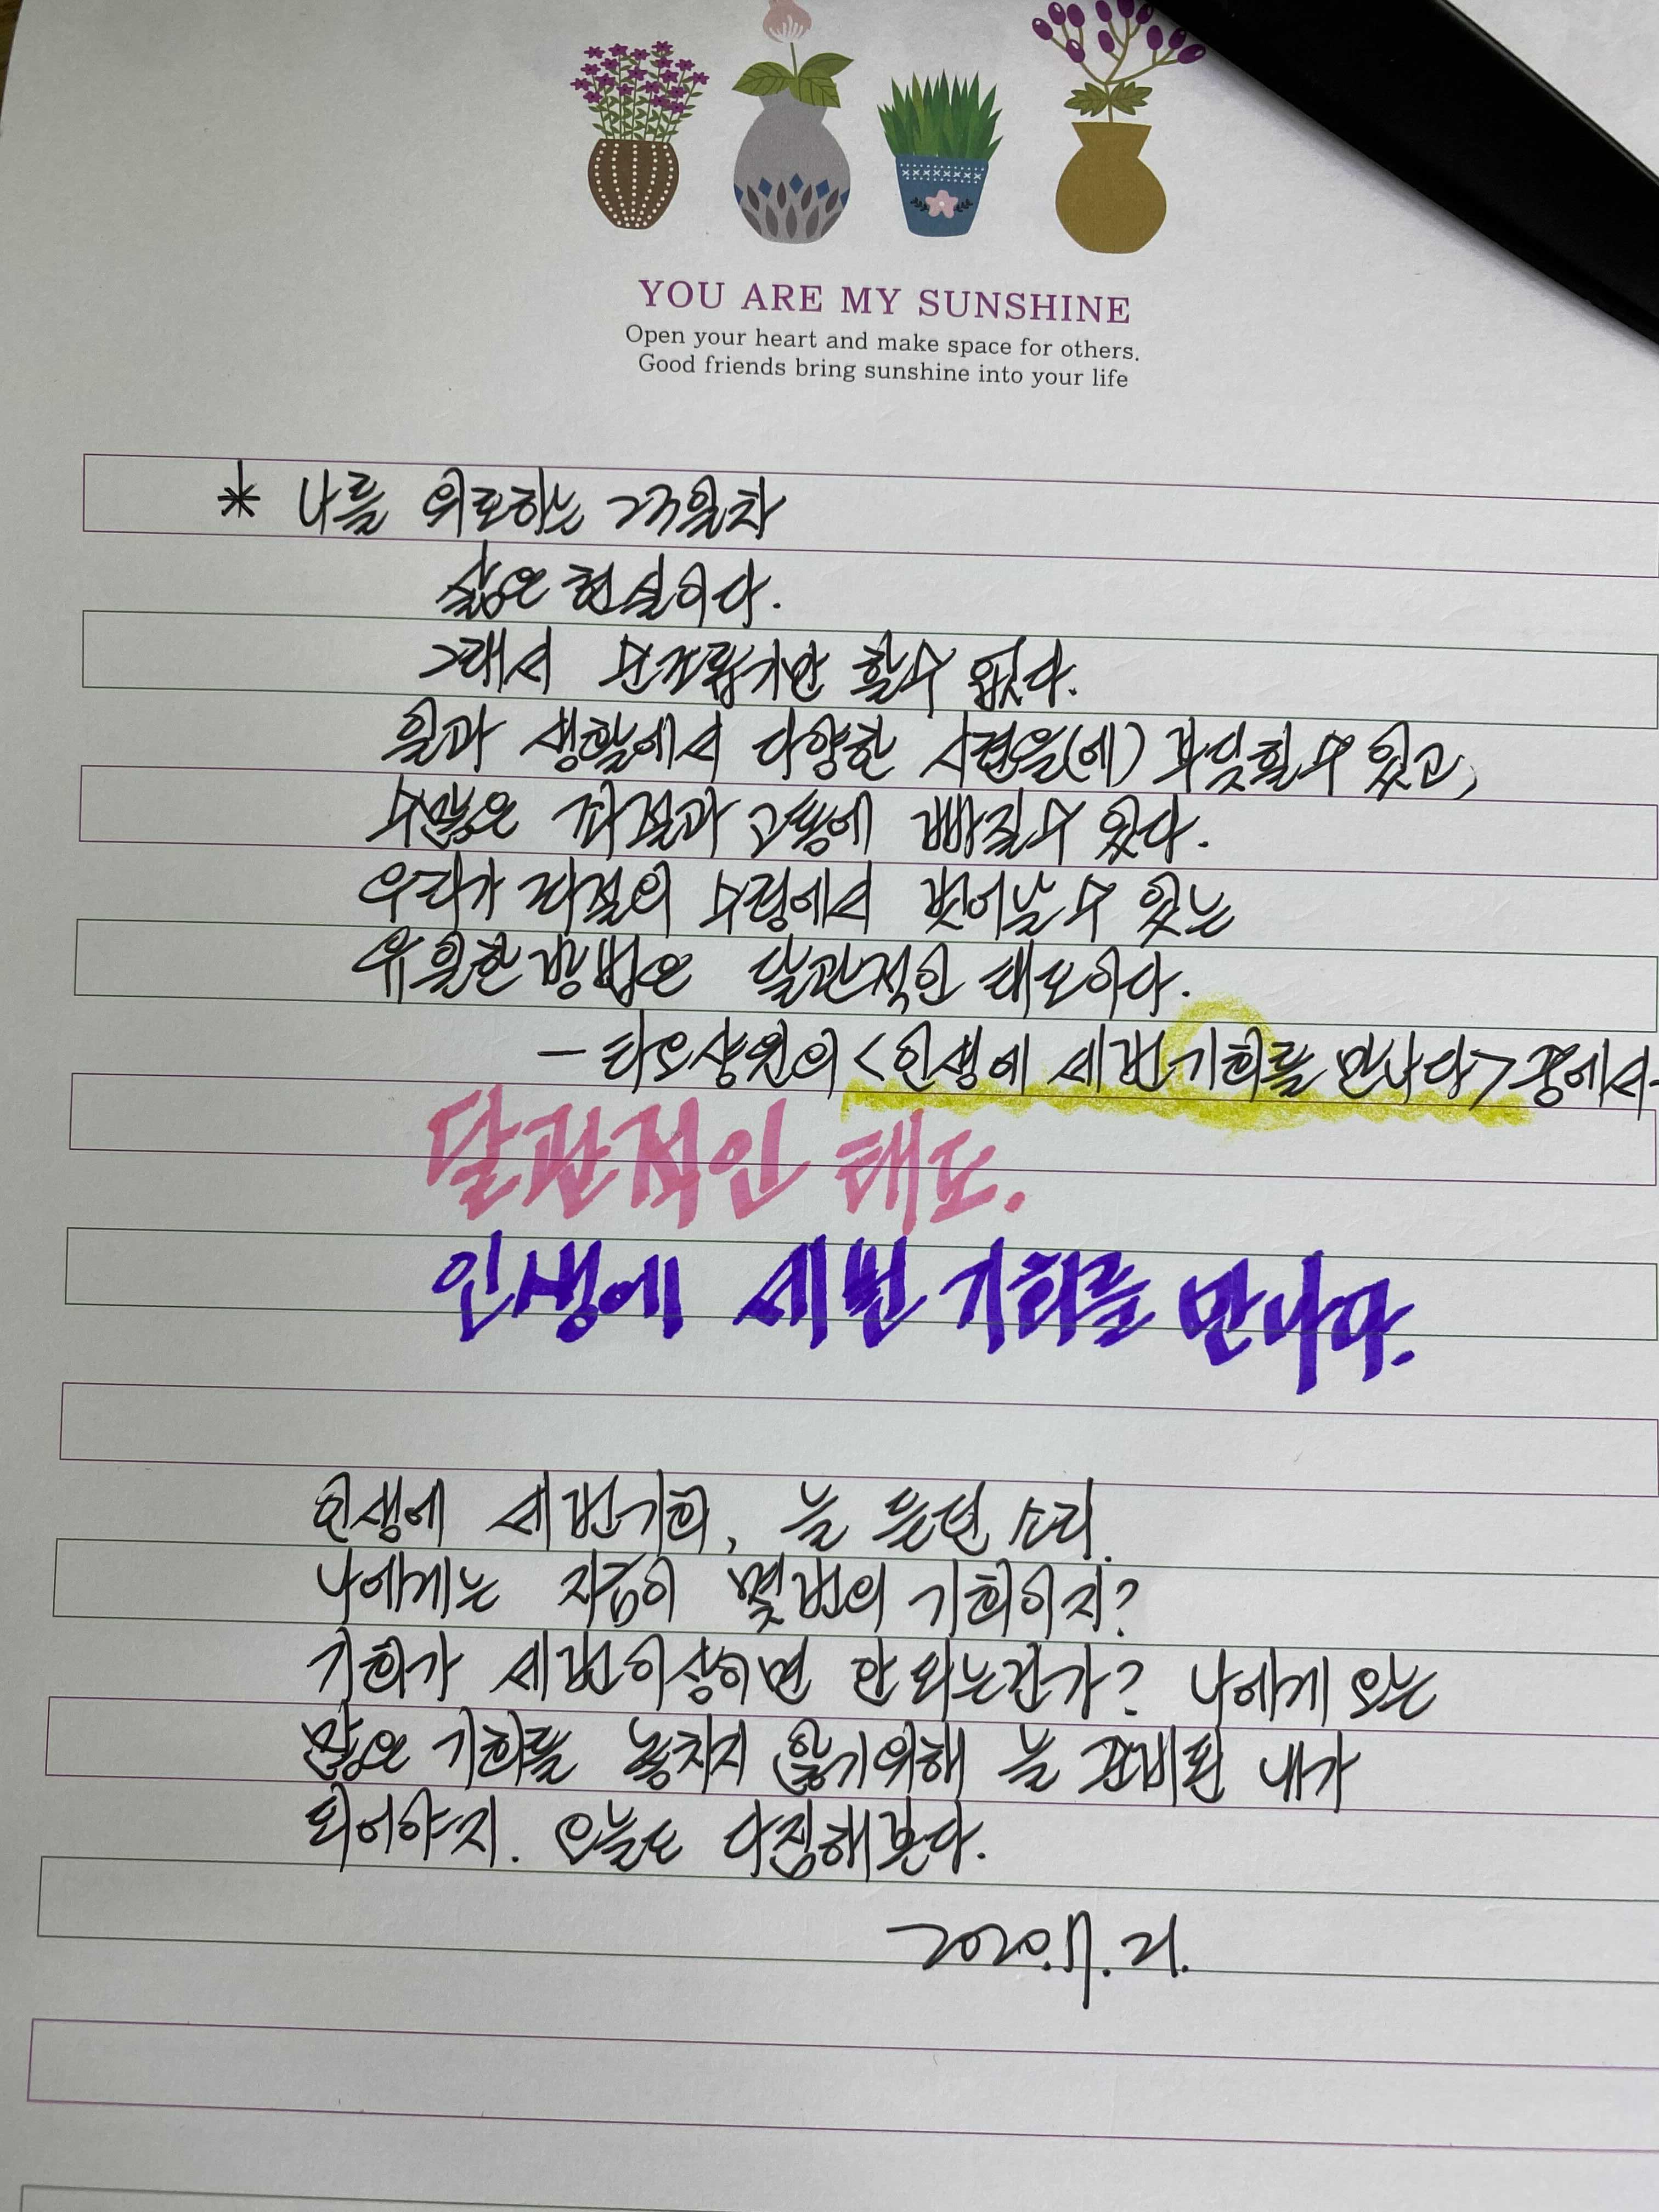 YOU ARE MY SUNSHINE
Open your heart and make space for others.
Good friends bring sunshine into your life
* 나를 위로하는 23일차
삶은 현실이다.
그래서 순조롭기만 할수 없다.
일과 생활에서 다양한 시련을(에) 부딪힐 수 있고,
수많은 좌절과 고통에 빠질수 있다.
우리가 좌절의 수렁에서 벗어날 수 있는
유일한 방법은 달관적인 태도이다.
- 타오샹윈의 <인생에 세번 기회를 만나다> 중에서-
달관적인 태도.
인생에 세번 기회를 만나다.
인생에 세번기회, 늘 듣던 소리.
나에게는 지금이 몇번의 기회이지?
기회가 세번이상이면 안 되는건가? 나에게 오는
많은 기회를 놓치지 않기위해 늘 준비된 내가
되어야지. 오늘도 다짐해본다.
2020.17.21.